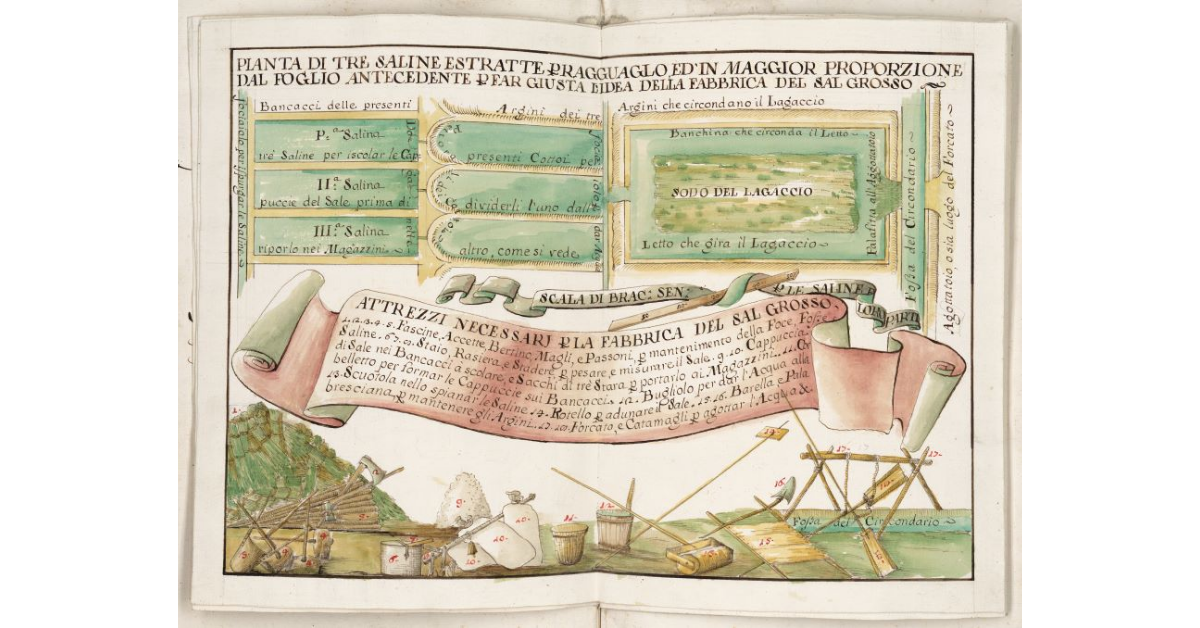 PIANTA DI TRE SALINE ESTRATTE PRAGGUAGLO ED'IN MAGGIOR PROPORZIONE
DAL FOGLIO ANTECEDENTE P FAR GIUSTA L'IDEA DELLA FABBRICA DEL SAL GROSSO
Bancacci delle presenti
P.ª Salina
tré Saline per iscolar le Cap
II.ª Salina
puccie del Sale prima di
III.ª Salina
riporlo nei Magazzini
Argini dei tre
presenti Cottoi per
dividerli l'uno dall'
altro, come si vede
Argini che circondano il Lagaccio
Banchina che circonda il Letto
SODO DEL LAGACCIO
Letto che gira il Lagaccio
Palafitta all'Agottatoio
Fossa del Circondario
Agottatoio, o sia luogo del Forcato
SCALA DI BRAC: SEN: P LE SALINE
PARTI
ATTREZZI NECESSARJ P LA FABBRICA DEL SAL GROSSO,
1.2.3.4.5. Fascine, Accette, Bertino, Magli, e Passoni, p mantenimento della Foce, Fosse
Saline. 6.7.8. Staio, Rasiera, e Staderi, p pesare, e misurare il Sale. 9.10. Cappuccia
di Sale nei Bancacci à scolare, e Sacchi di trè Stara p portarlo ai Magazzini. 11. Cor
belletto per formar le Cappuccie sui Bancacci. 12. Bugliolo per dar l'Acqua alla
13. Scuotola nello spianar le Saline. 14. Rotello p adunare il Sale. 15.16. Barella, e Pala
bresciana, p mantenere gli Argini. 17.18. Forcato, e Catamagli p agottar l'Acqua &
Fossa del Circondario